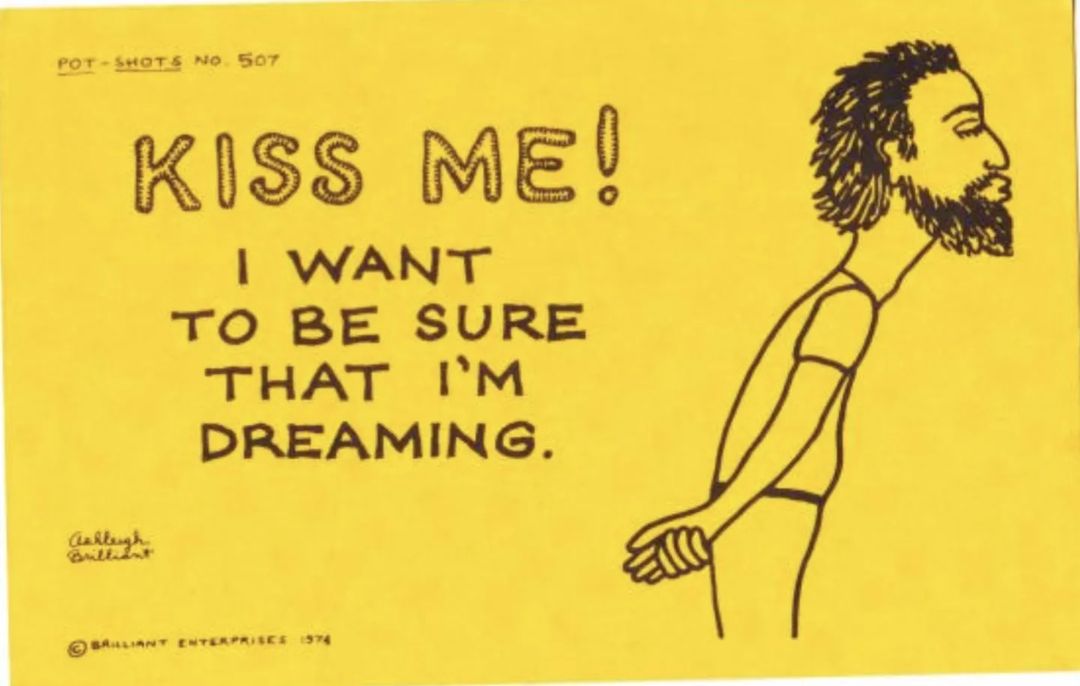 POT-SHOTS NO. 507
KISS ME!
I WANT
TO BE SURE
THAT I'M
DREAMING.
Ashleigh
Brilliant
© BRILLIANT ENTERPRISES 1974